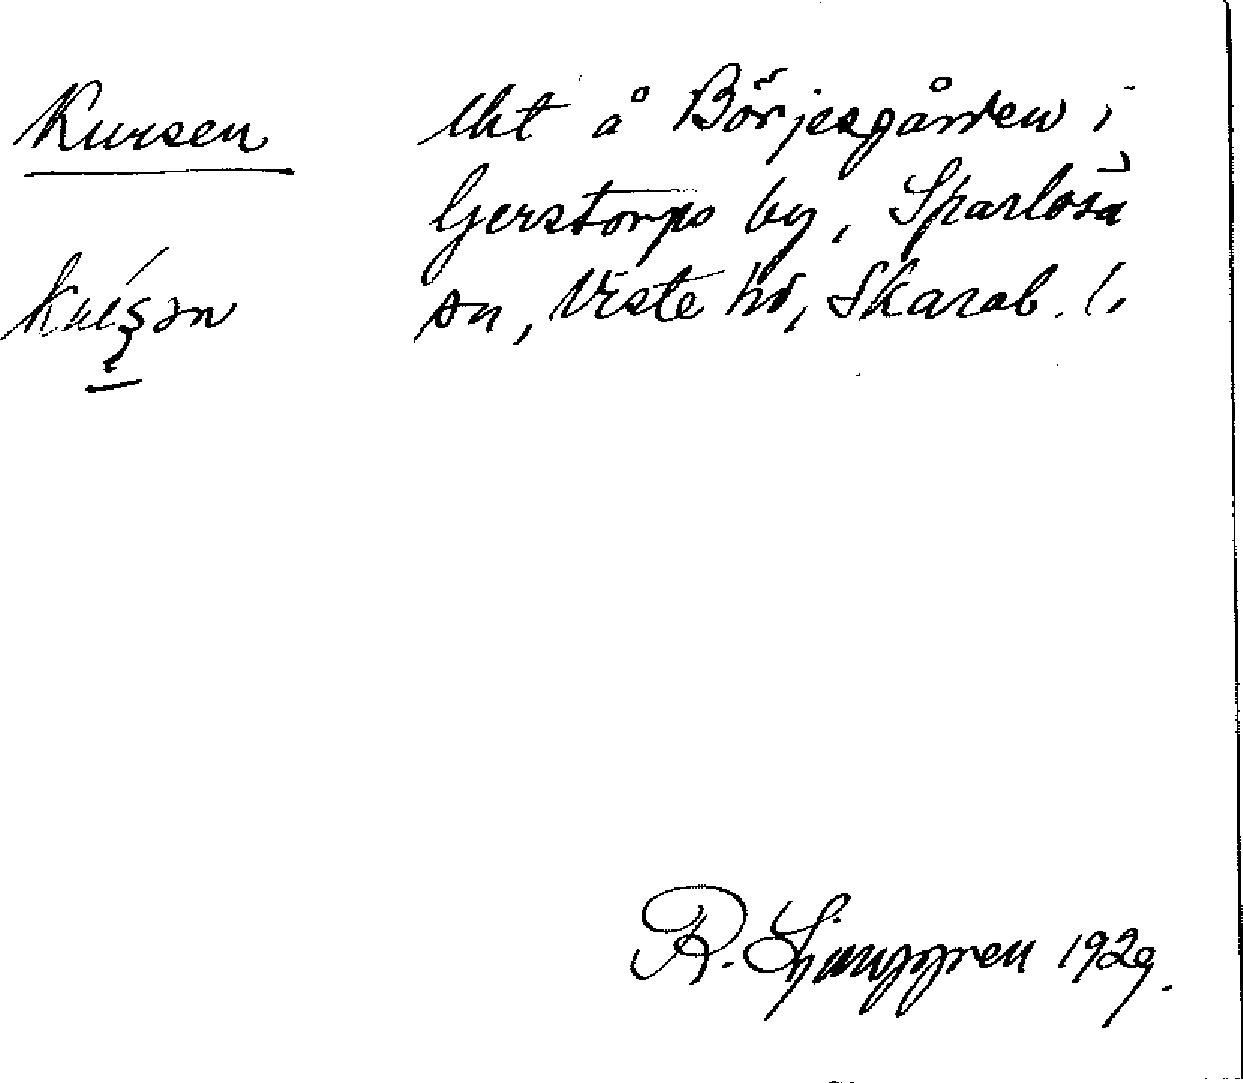 Kursen
lht å Börjesgården i
Gerstorps by, Sparlösa
sn, Viste hd, Skarab. l.
R. Ljunggren 1929.